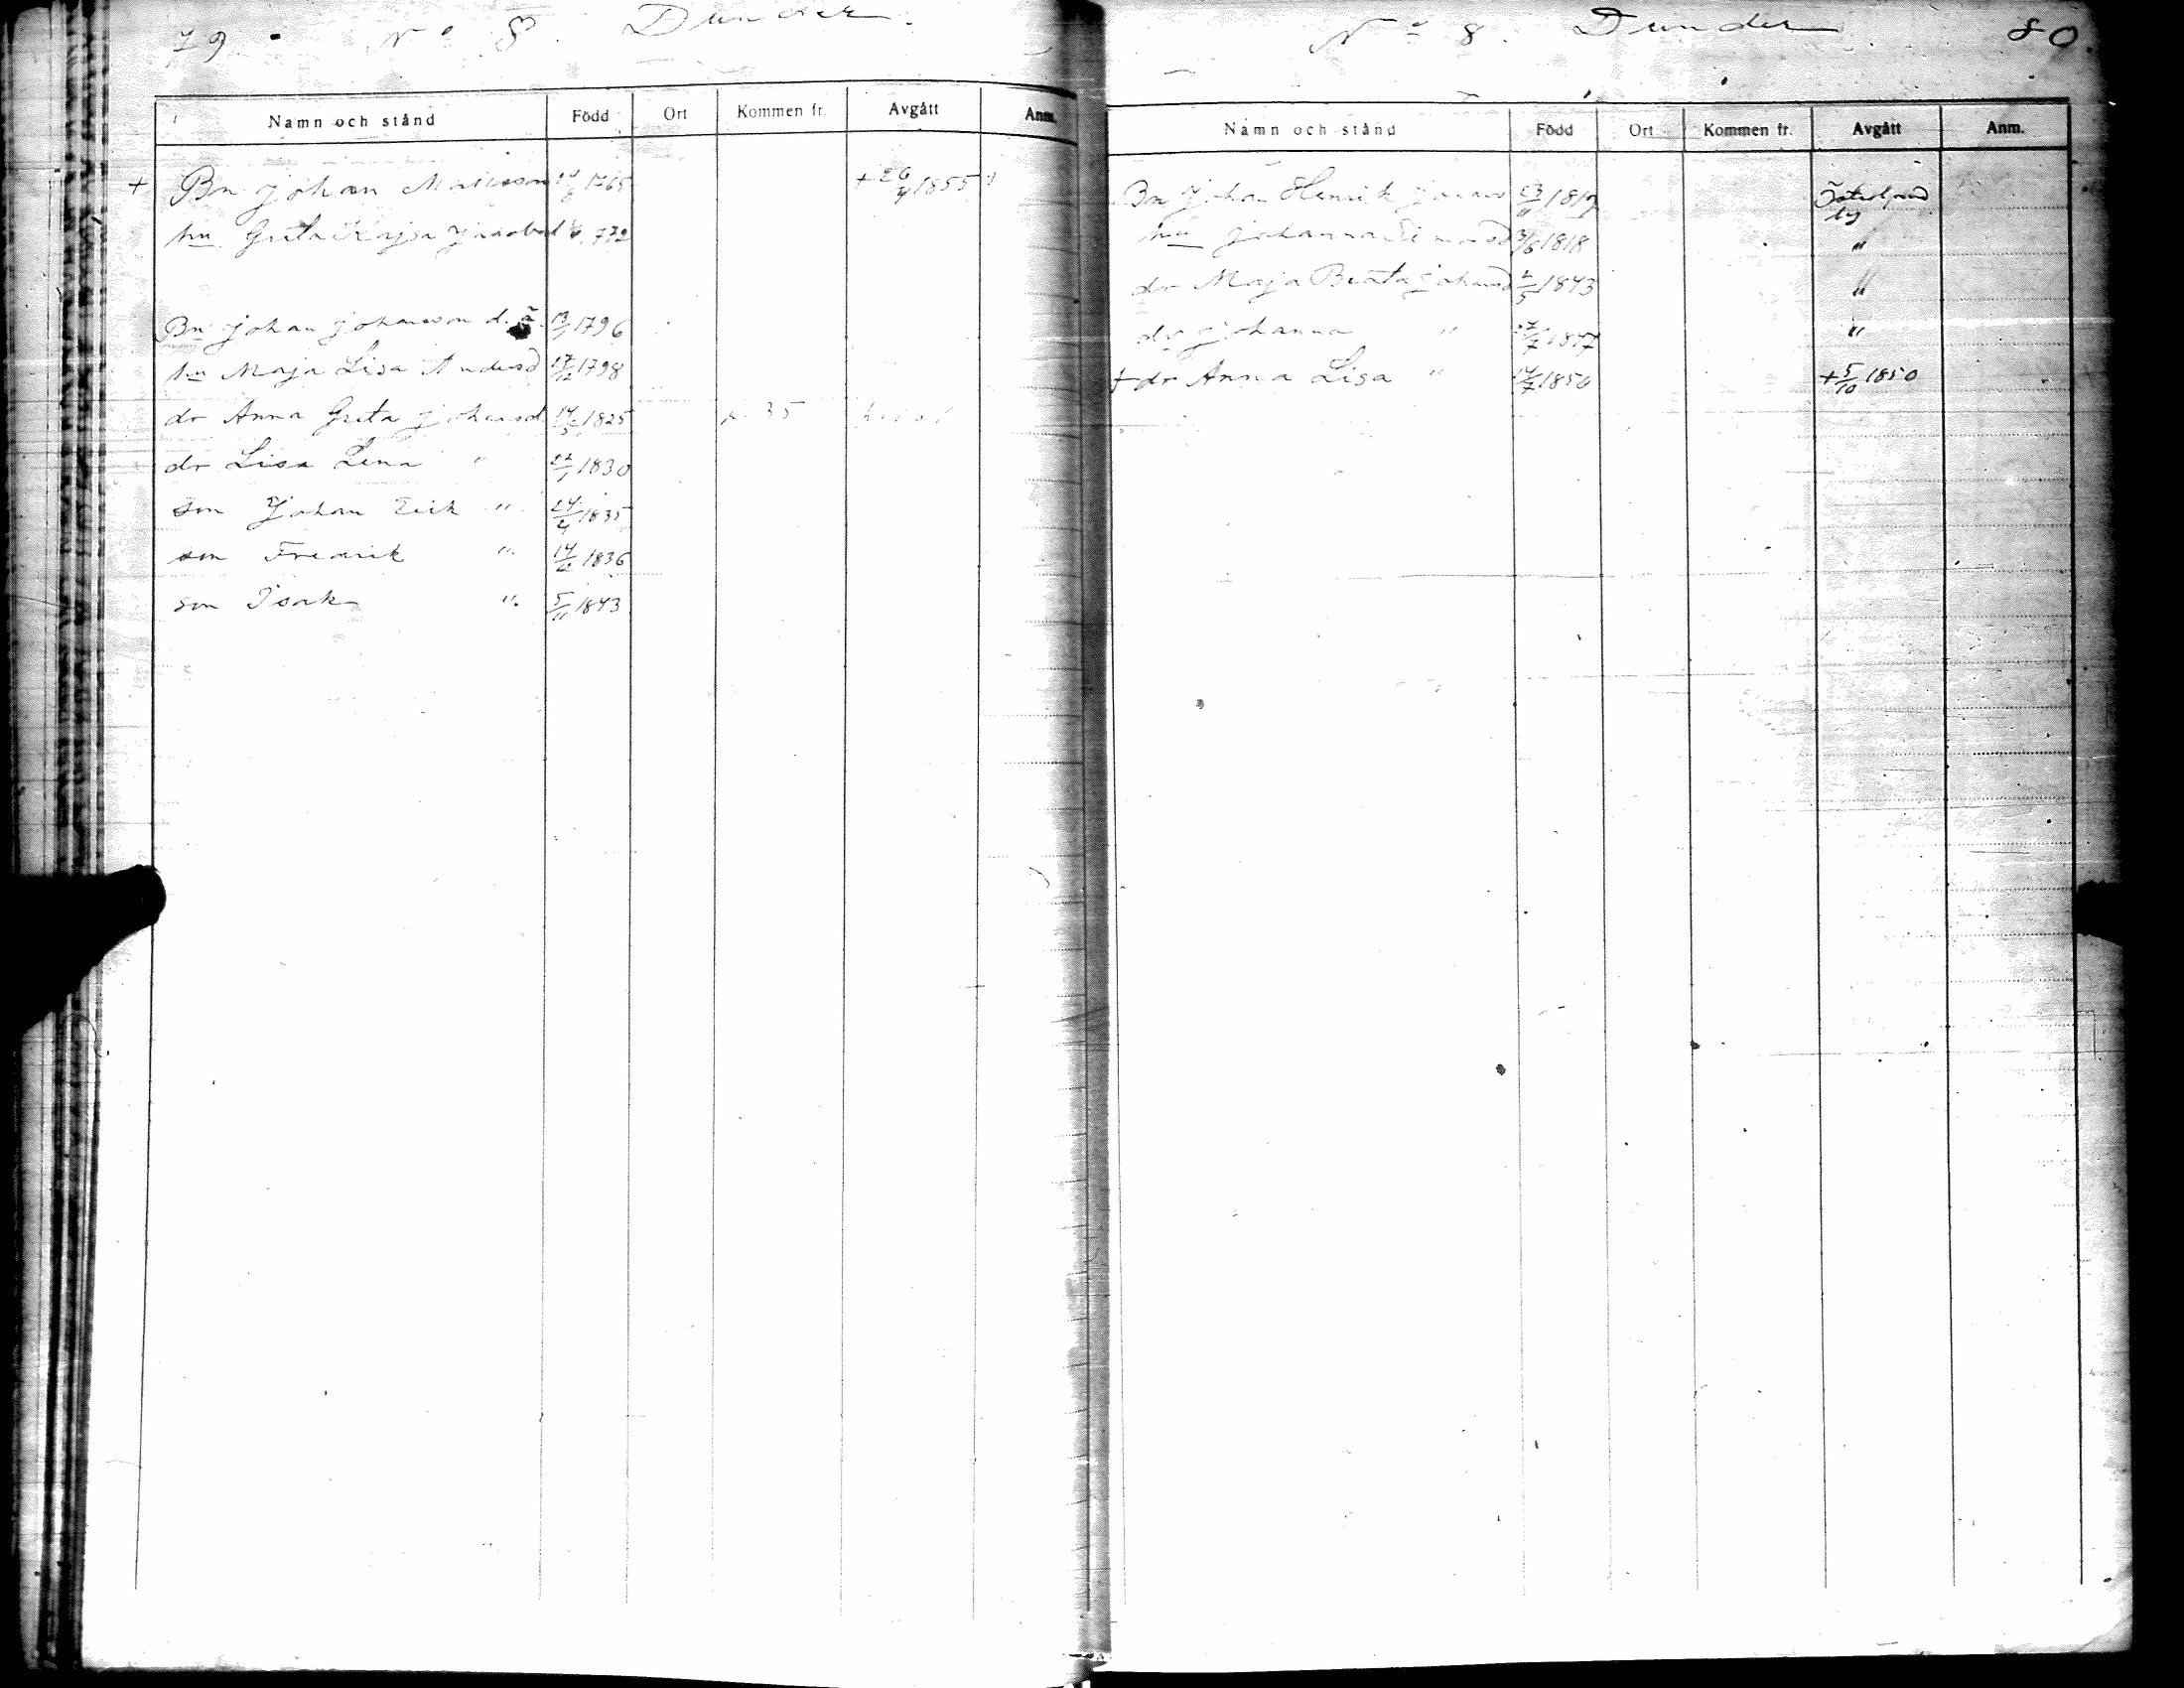 79 No 8. Dunder.
Namn och stånd Född Ort Kommen fr. Avgått Anm.
+ Bn Johan Matsson 1765 + 26/4 1855
hu Greta Kajsa Jacobsd 772
Bn Johan Johansson d.ä. 1796
hu Maja Lisa Andersd 17/12 1798
dr Anna Greta Johansd 14/5 1825 35
dr Lisa Lena " 22/1 1830
son Johan Erik " 24/4 1835
son Fredrik " 1836
son Isak " 5/11 1843
No 8. Dunder 80.
Namn och stånd Född Ort Kommen fr. Avgått Anm.
Bn Johan Henrik 23/11
hu Johanna Simonsd 3/6 1818 "
dr Maja Beata Johansd 2/5 1843 "
dr Johanna " "
+ dr Anna Lisa " 1850 + 5/10 1850